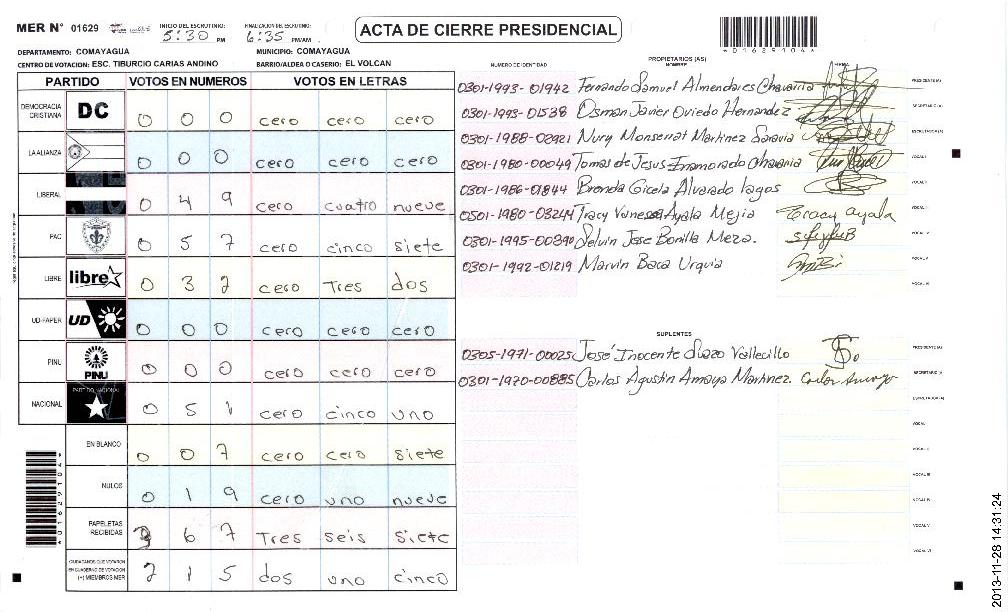 MER N° 01629 INICIO DEL ESCRUTINIO: 5:30 PM FINALIZACION DEL ESCRUTINIO: 6:35 PM/AM
ACTA DE CIERRE PRESIDENCIAL
*01629104*
DEPARTAMENTO: COMAYAGUA MUNICIPIO: COMAYAGUA
CENTRO DE VOTACION: ESC. TIBURCIO CARIAS ANDINO BARRIO/ALDEA O CASERIO: EL VOLCAN
PARTIDO VOTOS EN NUMEROS VOTOS EN LETRAS
DEMOCRACIA CRISTIANA DC 0 0 0 cero cero cero
LA ALIANZA 0 0 0 cero cero cero
LIBERAL 0 4 9 cero cuatro nueve
PAC 0 5 7 cero cinco siete
LIBRE libre 0 3 2 cero Tres dos
UD-FAPER UD 0 0 0 cero cero cero
PINU PINU 0 0 0 cero cero cero
NACIONAL PARTIDO NACIONAL 0 5 1 cero cinco uno
EN BLANCO 0 0 7 cero cero siete
NULOS 0 1 9 cero uno nueve
PAPELETAS RECIBIDAS 3 6 7 Tres seis siete
CIUDADANOS QUE VOTARON EN CUADERNO DE VOTACION (+) MIEMBROS MER 2 1 5 dos uno cinco
PROPIETARIOS (AS)
NUMERO DE IDENTIDAD NOMBRE FIRMA
0301-1993-01942 Fernando Samuel Almendares Chavarria PRESIDENTE(A)
0301-1993-01538 Osman Javier Oviedo Hernandez SECRETARIO(A)
0301-1988-02921 Nury Monserrat Martinez Saravia ESCRUTADOR(A)
0301-1980-00049 Tomas de Jesus Inamorado Chavarria VOCAL I
0301-1986-01844 Brenda Gicela Alvarado lagos VOCAL II
0501-1980-03244 Tracy Vanessa Ayala Mejia Tracy ayala VOCAL III
0301-1995-00390 Selvin Jose Bonilla Meza. VOCAL IV
0301-1992-01219 Marvin Baca Urquia VOCAL V
VOCAL VI
SUPLENTES
0305-1971-00025 José Inocente Suazo Vallecillo PRESIDENTE(A)
0301-1970-00885 Carlos Agustin Amaya Martinez. Carlos Amaya SECRETARIO(A)
ESCRUTADOR(A)
VOCAL I
VOCAL II
VOCAL III
VOCAL IV
VOCAL V
VOCAL VI
*01629104*
2013-11-28 14:31:24